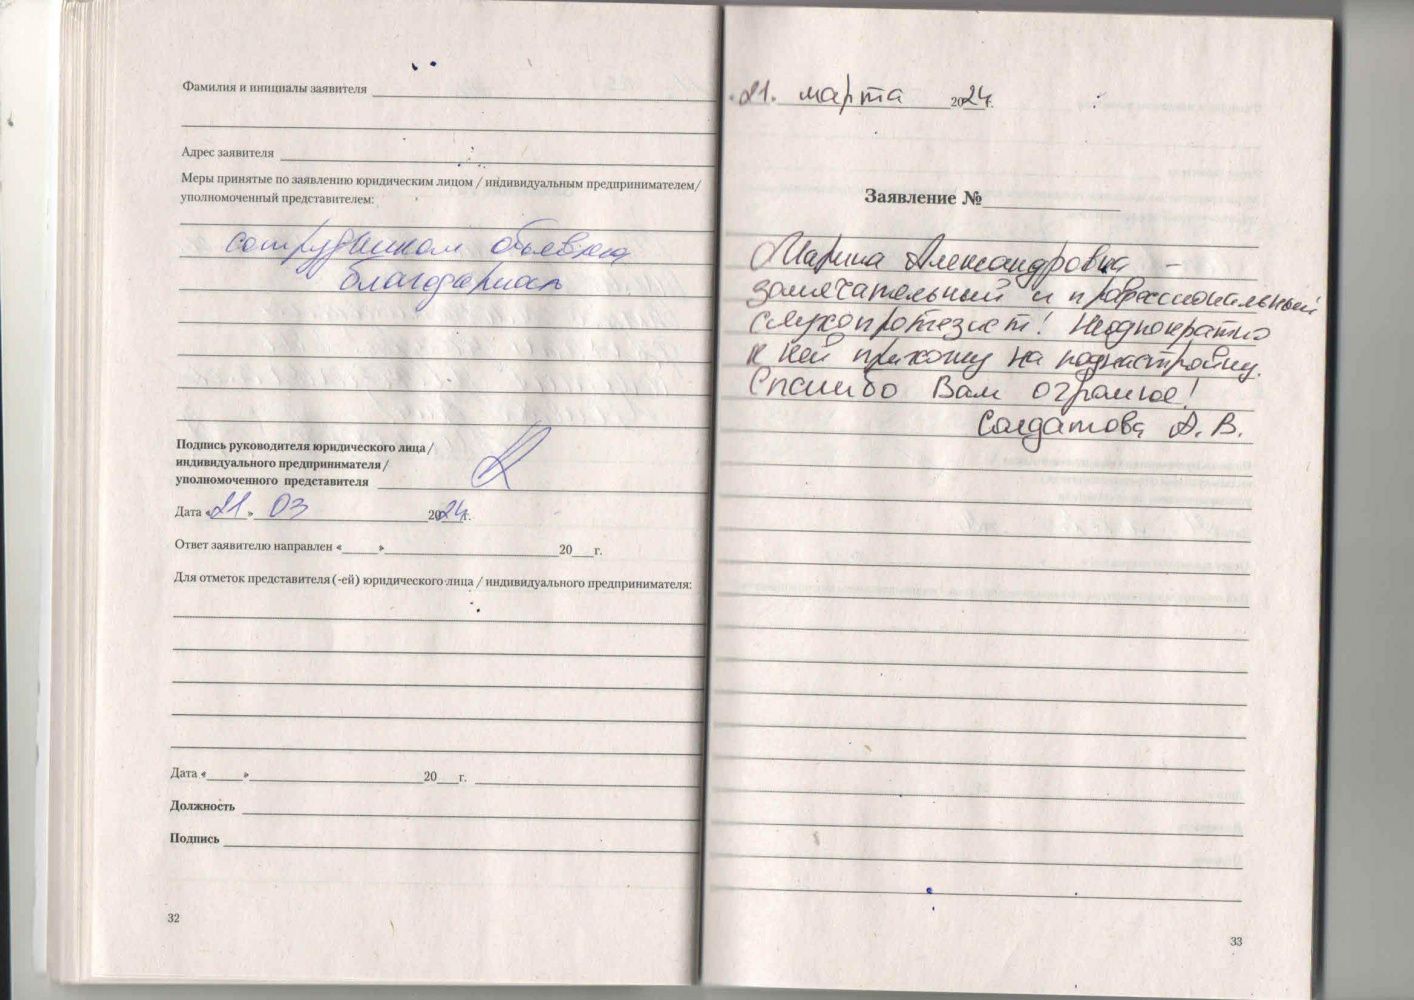 Фамилия и инициалы заявителя
Адрес заявителя
Меры принятые по заявлению юридическим лицом / индивидуальным предпринимателем/
уполномоченный представителем:
сотрудникам объявлена
благодарность
Подпись руководителя юридического лица /
индивидуального предпринимателя /
уполномоченного представителя
Дата «21» 03 2024г.
Ответ заявителю направлен «____»____20___г.
Для отметок представителя (-ей) юридического лица / индивидуального предпринимателя:
Дата «____»____20___г.
Должность
Подпись
32
21. марта 2024г.
Заявление №
Марина Александровна -
замечательный и профессиональный
слухопротезист! Неоднократно
к ней прихожу на поднастройку.
Спасибо Вам огромное!
Солдатова А. В.
33